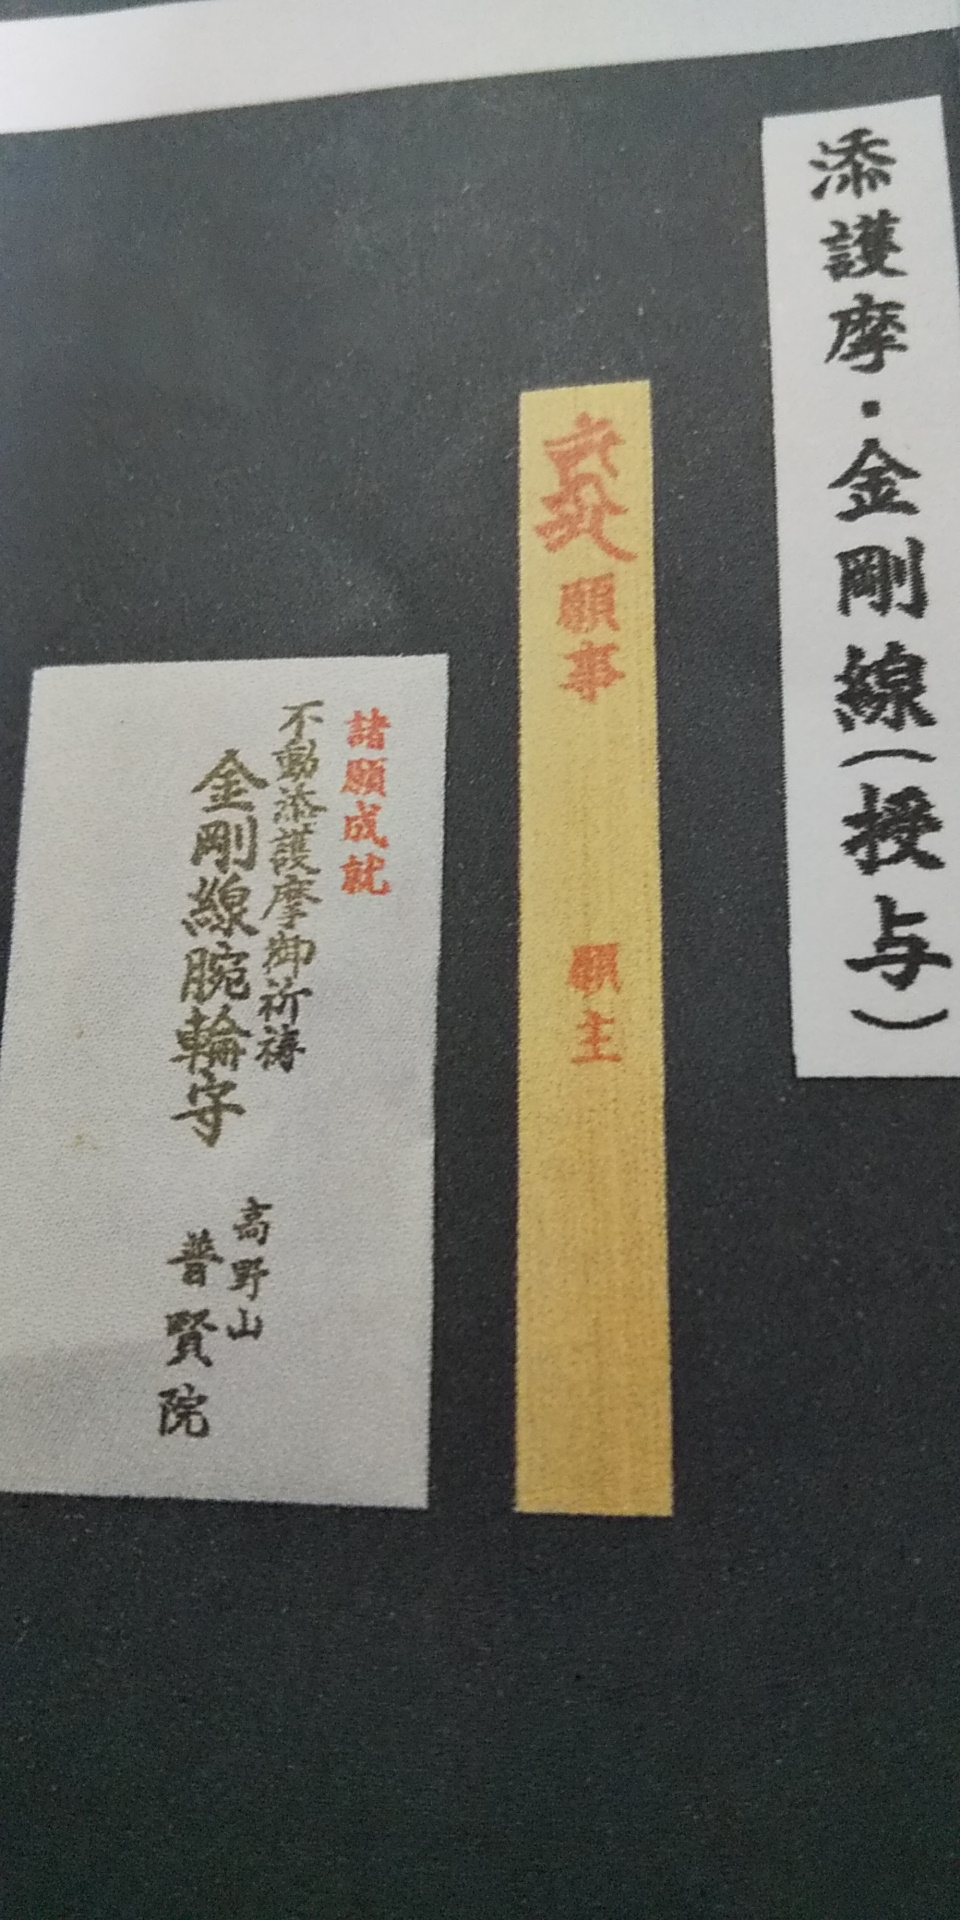 添護摩・金剛線(授与)
願事　願主
諸願成就
不動添護摩御祈祷
金剛線腕輪守
高野山
普賢院